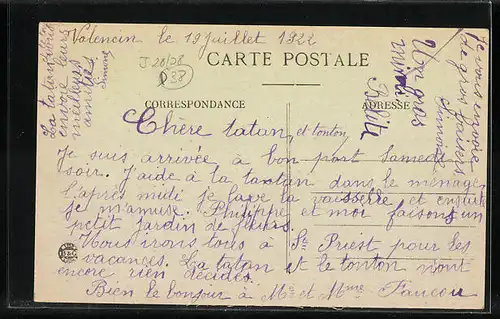 Valencin le 19 juillet 1922
J 20/28
D 38
CARTE POSTALE
CORRESPONDANCE
ADRESSE
Chère tatan, et tonton,
Je suis arrivée à bon port Samedi
soir. J'aide à la tantan dans le ménage
l'après midi je lave la vaisserre et ensuite
je m'amuse. Philippe et moi faisons un
petit jardin de fleurs.
Nous irons tous à St Priest pour les
vacances. La tatan et le tonton n'ont
encore rien décidés.
Bien le bonjour à Mr et Mme Faucou
La tatan vous
envoie leurs
meilleurs
amitiés
Simone
Un gros
mimi
Je vous envoie
de gros baisers
Simone